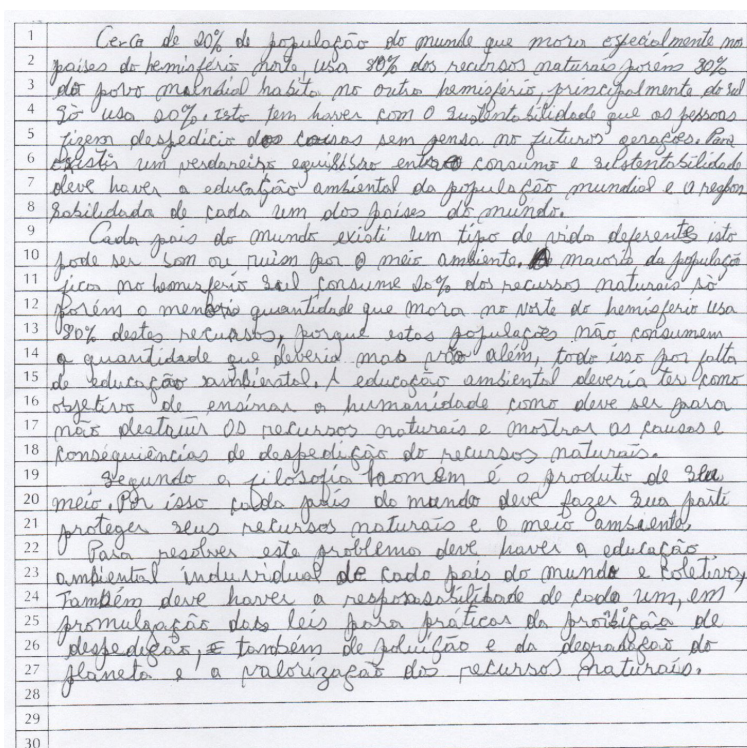 1 Cerca de 20% de população do munde que mora especialmente nos
2 países do hemisfério norte, usa 80% dos recursos naturais porém 80%
3 do povo mundial habita no outro hemisfério, principalmente do sul
4 só usa 20%. isto tem haver com a sustentabilidade que as pessoas
5 fizem despedício das coisas sem pensa no futuros gerações. Para
6 existir um verdareiro equilíbrio entre o consumo e sustentabilidade
7 deve haver a educação ambiental da população mundial e a respon
8 sabilidada de cada um dos países do mundo.
9 Cada país do mundo existi um tipo de vida deferentes isto
10 pode ser bom ou ruim por o meio ambiente. A maioria da populaçã
11 fica no hemisferio sul consume 20% dos recursos naturais só
12 porém a menoria quantidade que mora no norte do hemisferio usa
13 80% destes recursos, porque estas populações não consumem
14 a quantidade que deveria mas vão além, todo isso por falta
15 de educação ambiental. A educação ambiental deveria ter como
16 objetivo de ensinar a humanidade como deve ser para
17 não destruir os recursos naturais e mostrar as causas e
18 conseguiências de despedição do recursos naturais.
19 Segundo a filosofia homem é o produto de seu
20 meio. Por isso cada país do mundo deve fazer sua parti
21 proteger seus recursos naturais e o meio ambiente.
22 Para resolver este problema deve haver a educação
23 ambiental induvidual de cada país do mundo e coletiva,
24 Também deve haver a resposasabilidade de cada um, em
25 promulgação das leis para práticas da proibição de
26 despedição, E também de poluição e da degradação do
27 planeta e a valorização dos recursos naturais.
28
29
30